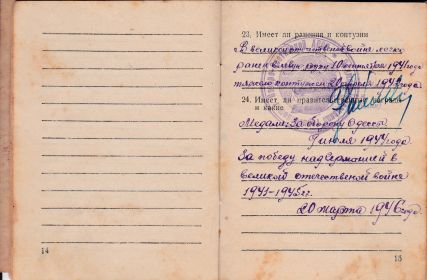 23. Имеет ли ранения и контузии
В великой отечественной войне легко
ранен в левую руку 10 сентября 1941 года
тяжело контужен 20 1942 года
24. Имеет ли правительственные награды
и какие
Медали: За оборону Одессы
9 июля 1944 года
За победу над Германией в
великой отечественной войне
1941-1945 гг.
20 марта 1946 года.
14
15